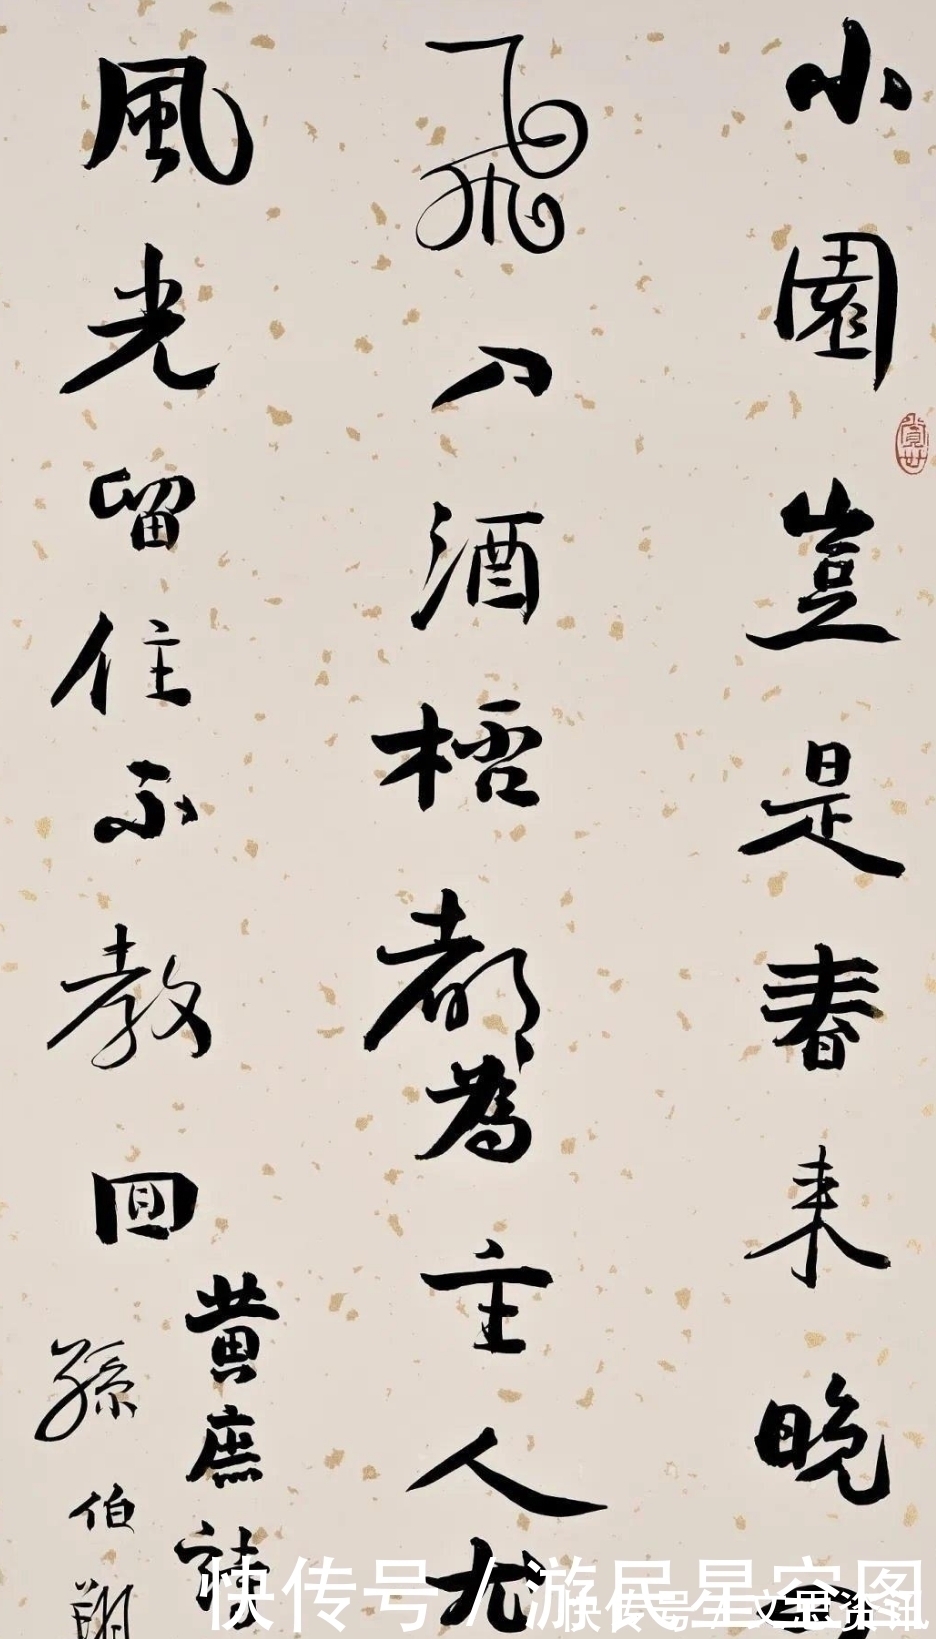 小園豈是春来晚
飛入酒桮都為主人尤
風光留住不教回
黄庶詩
孫伯翔
快传号 / 游民星空图